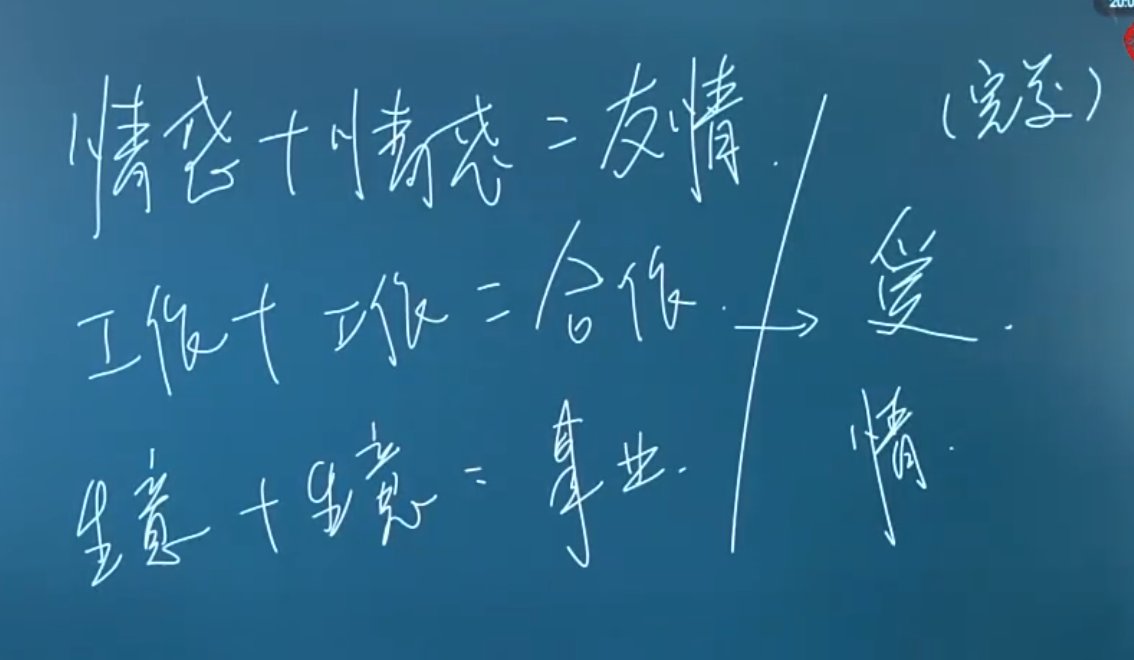 情感+情感=友情.
工作+工作=合作.
生意+生意=事业.
→
爱.
情.
20:0